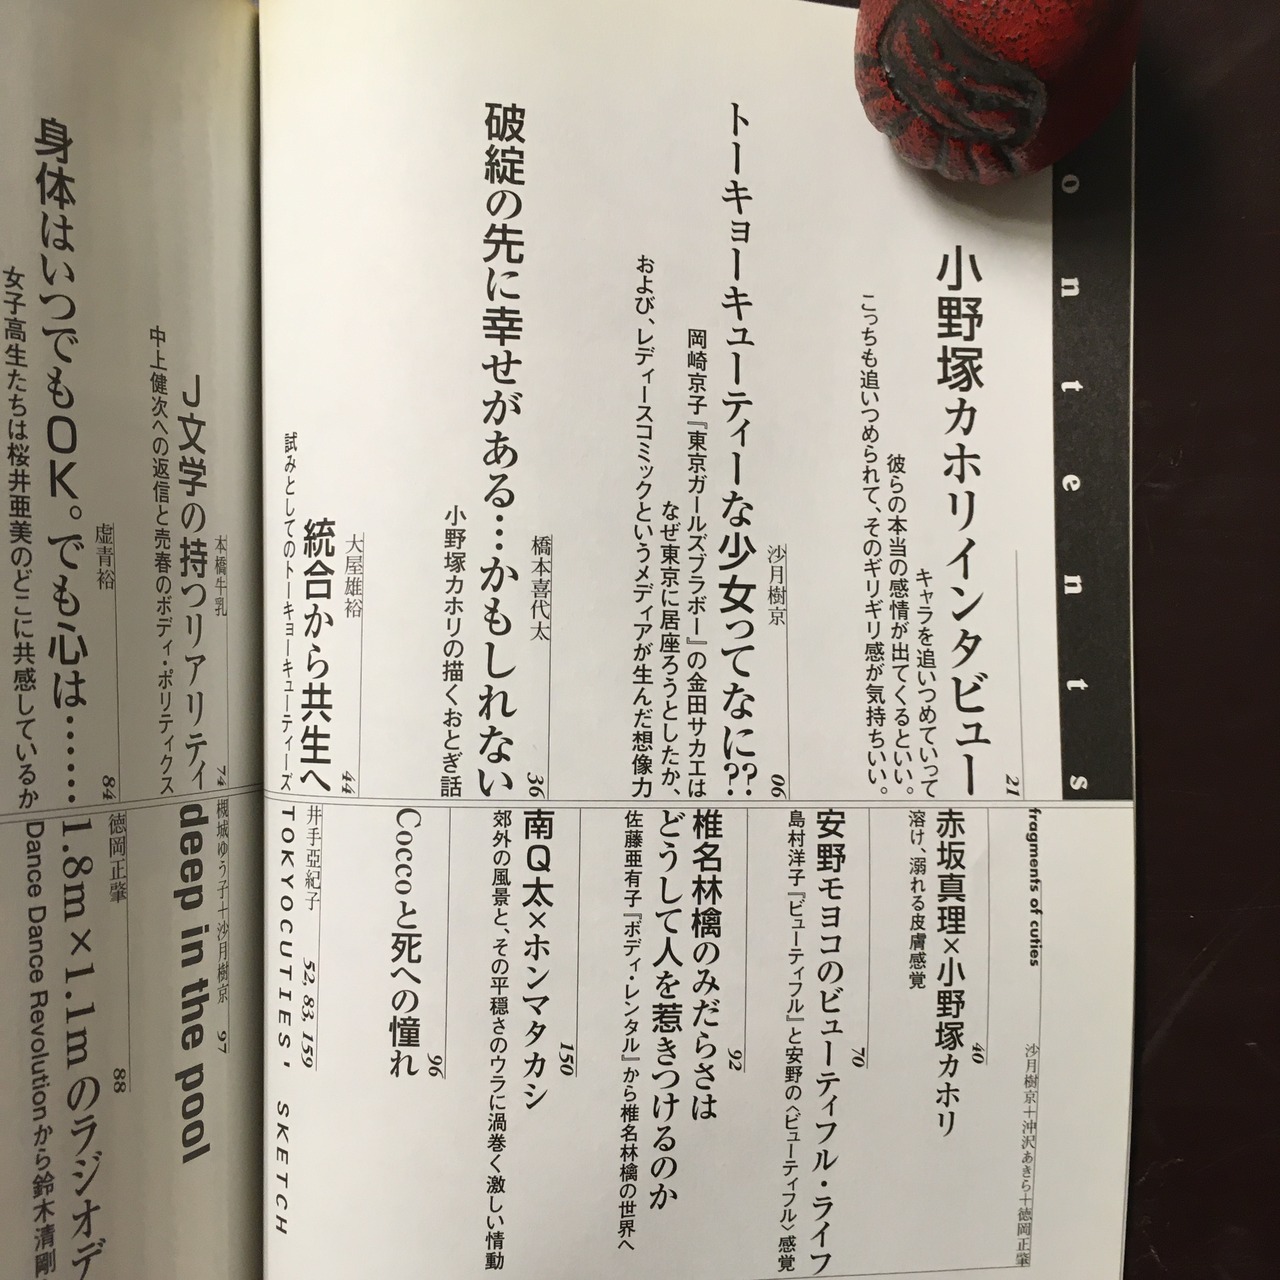 ontents
小野塚カホリインタビュー
21
キャラを追いつめていって
彼らの本当の感情が出てくるといい。
こっちも追いつめられて、そのギリギリ感が気持ちいい。
沙月樹京
06
トーキョーキューティーな少女ってなに??
岡崎京子『東京ガールズブラボー』の金田サカエは
なぜ東京に居座ろうとしたか、
および、レディースコミックというメディアが生んだ想像力
橋本喜代太
36
破綻の先に幸せがある…かもしれない
小野塚カホリの描くおとぎ話
大屋雄裕
44
統合から共生へ
試みとしてのトーキョーキューティーズ
fragments of cuties
沙月樹京＋沖沢あきら＋徳岡正肇
赤坂真理×小野塚カホリ
40
溶け、溺れる皮膚感覚
安野モヨコのビューティフル・ライフ
70
島村洋子『ビューティフル』と安野の〈ビューティフル〉感覚
椎名林檎のみだらさは
どうして人を惹きつけるのか
92
佐藤亜有子『ボディ・レンタル』から椎名林檎の世界へ
南Q太×ホンマタカシ
150
郊外の風景と、その平穏さのウラに渦巻く激しい情動
Coccoと死への憧れ
96
井手亞紀子
52, 83, 159
TOKYOCUTIES' SKETCH
本橋牛乳
74
J文学の持つリアリティ
中上健次への返信と売春のボディ・ポリティクス
虚青裕
84
身体はいつでもOK。でも心は……
女子高生たちは桜井亜美のどこに共感しているか
槻城ゆう子＋沙月樹京
97
deep in the pool
徳岡正肇
88
1.8m×1.1mのラジオデ
Dance Dance Revolutionから鈴木清剛